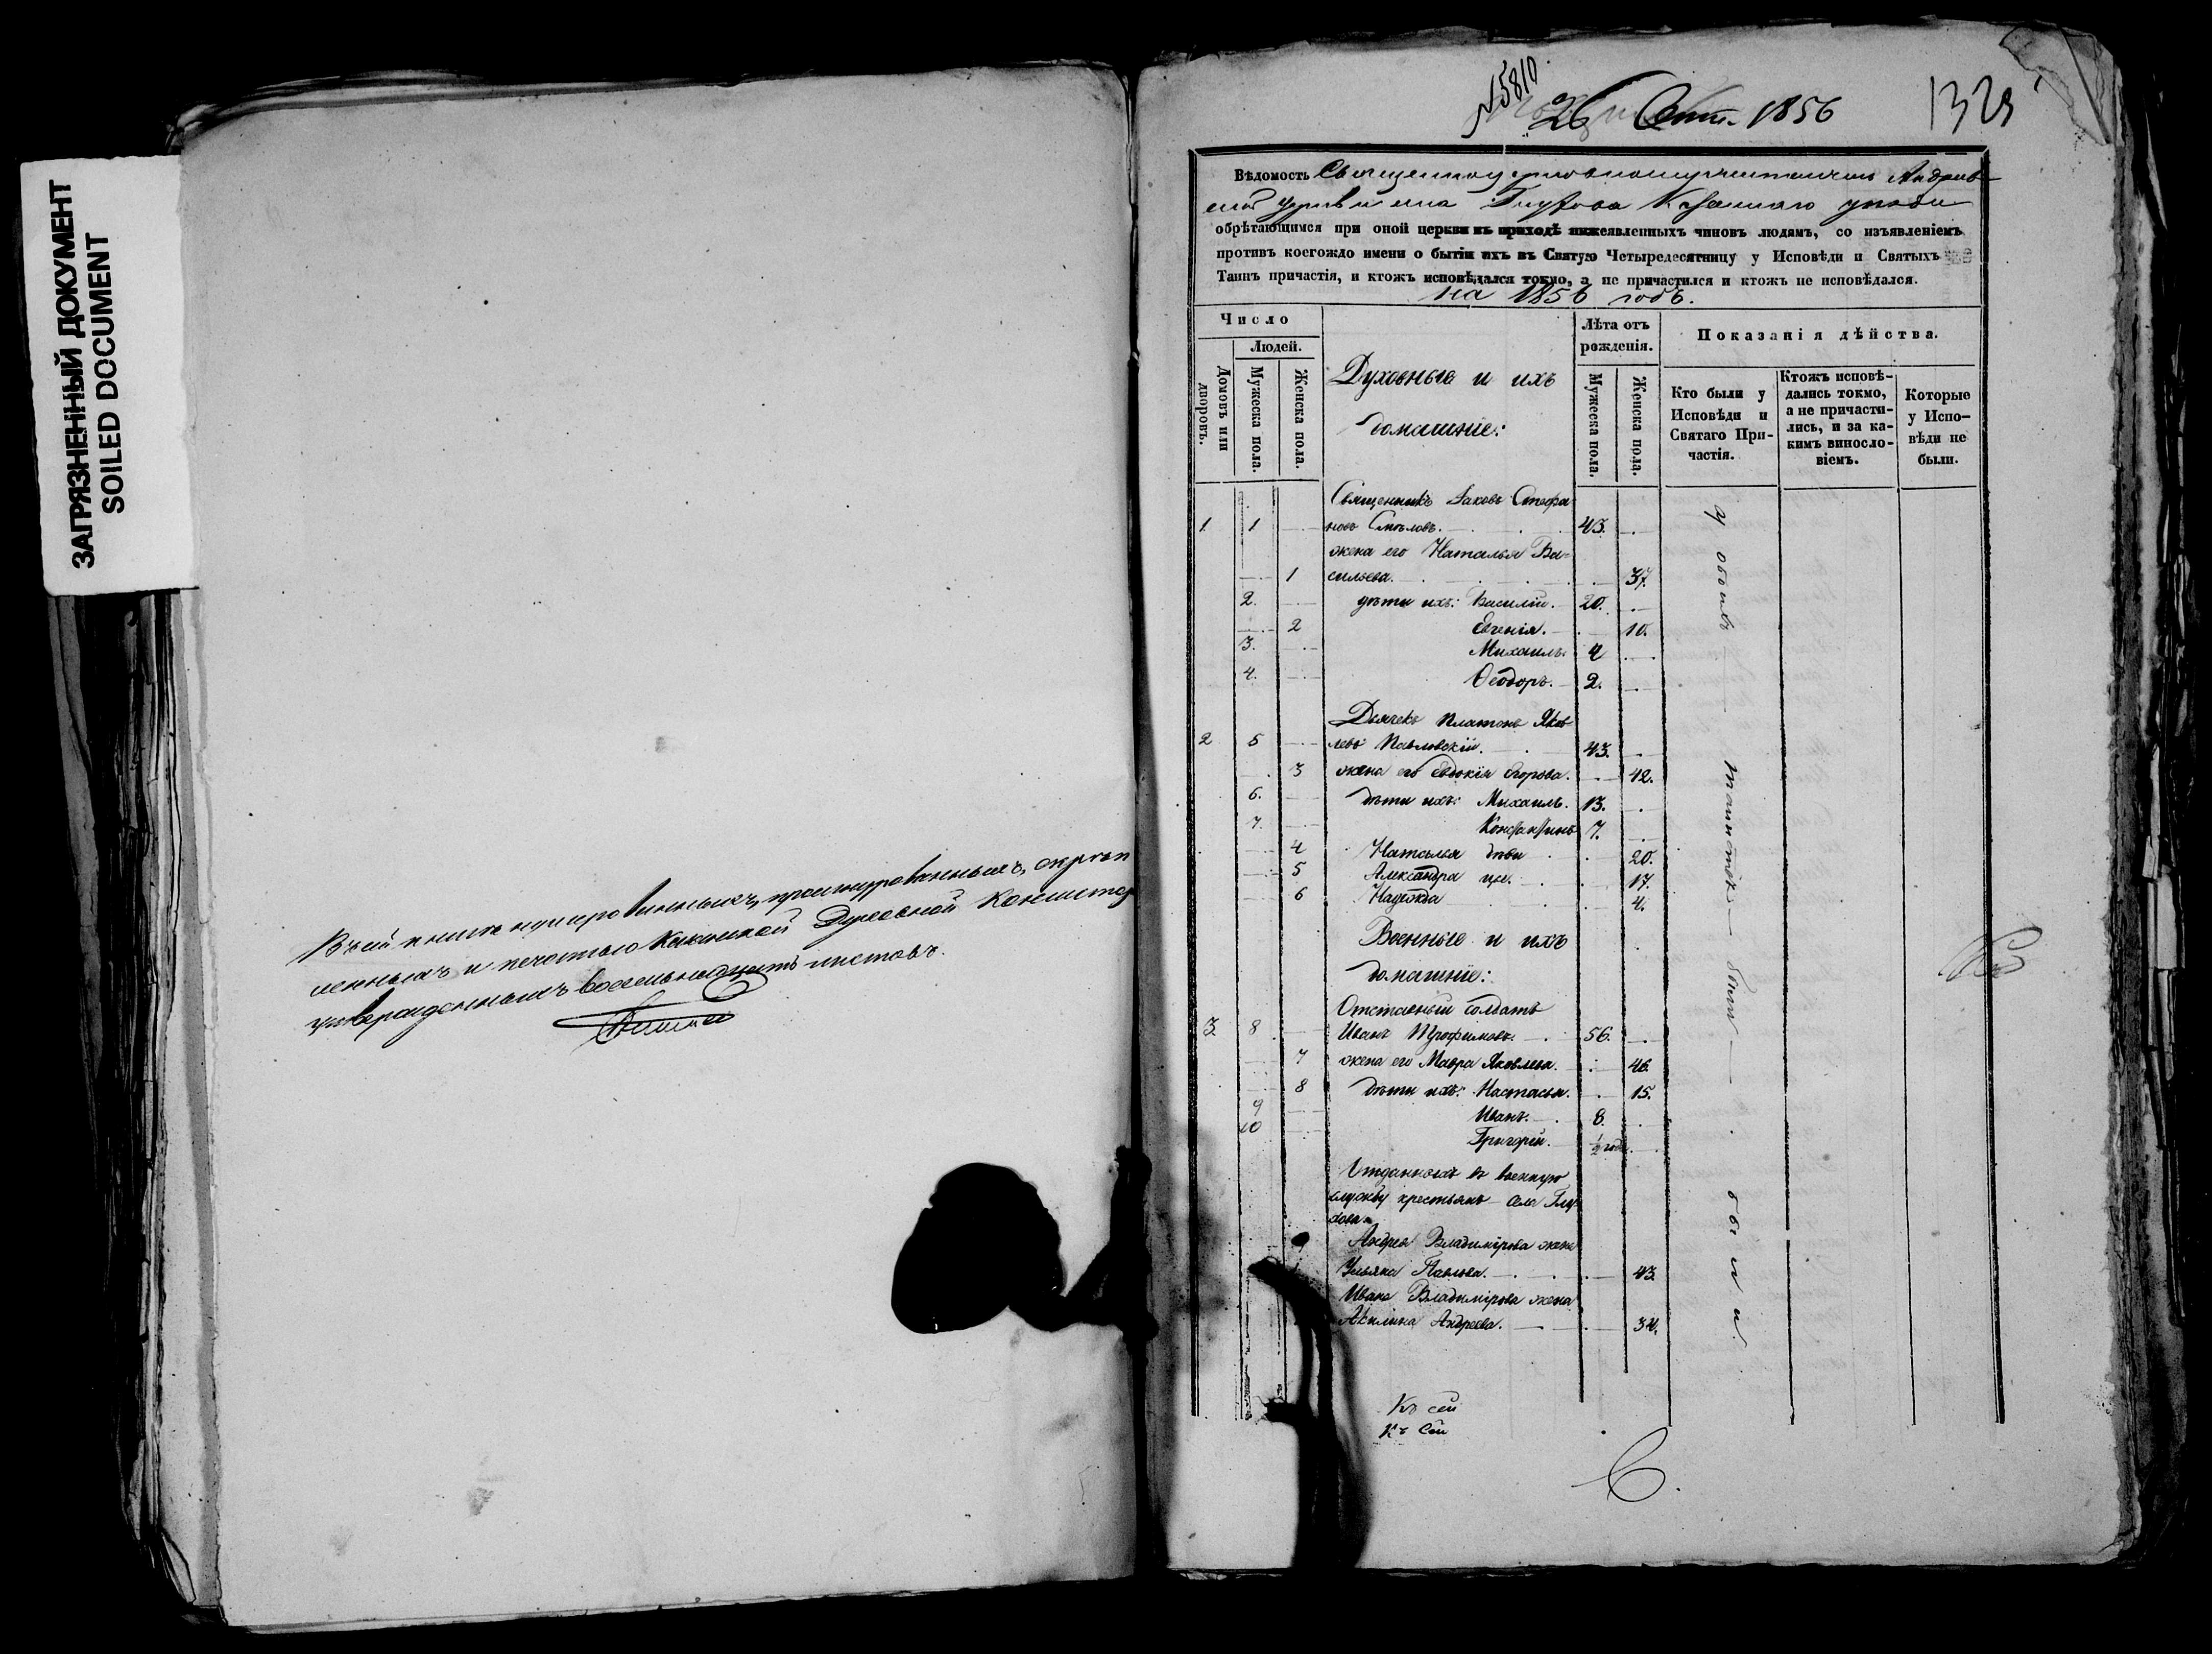 ЗАГРЯЗНЕННЫЙ ДОКУМЕНТ
SOILED DOCUMENT
Въ сей книге нумерованныхъ, прошнурованныхъ, скреп
ленныхъ и печатью Духовной Консистор
утвержденныхъ восемьнадцать листовъ.
№5810
26 Сент. 1856
132
Вѣдомость Священноцерковнослужителямъ Андреев
ской церкви села Глухова уѣзда
обрѣтающимся при оной церкви въ приходѣ нижеявленныхъ чиновъ людямъ, со изъявленіемъ
противъ коегождо имени о бытіи ихъ въ Святую Четыредесятницу у Исповѣди и Святыхъ
Таинъ причастія, и ктожъ исповѣдался токмо, а не причастился и ктожъ не исповѣдался.
на 1856 годъ.
Число
Людей.
Домовъ или дворовъ.
Мужеска пола.
Женска пола.
Духовные и ихъ
домашніе:
Лѣта отъ
рожденія.
Мужеска пола.
Женска пола.
Показанія дѣйства.
Кто были у
Исповѣди и
Святаго При-
частія.
Ктожъ исповѣ-
дались токмо,
а не причасти-
лись, и за ка-
кимъ винословіемъ.
Которые
у Испо-
вѣди не
были.
Священникъ Іаковъ Стефа
1 1 новъ Смѣловъ. 43.
жена его Наталья Ва=
1 сильева. 37.
2. дѣти ихъ: Василій. 20.
2 Евгенія. 10.
3. Михаилъ. 4
4. Ѳеодоръ. 2.
Дьячекъ Платонъ Яков
2 5 левъ Павловскій. 43.
3 жена его Евдокія Егорова. 42.
6. дѣти ихъ: Михаилъ. 13.
7. Константинъ 7.
4 Наталья дѣви 20.
5 Александра 17.
6 Надежда 4.
Военные и ихъ
домашніе:
Отставный солдатъ
3 8 Иванъ Трофимовъ. 56.
7 жена его Мавра Яковлева. 46.
8 дѣти ихъ: Настасья. 15.
9 Иванъ. 8.
10 Григорій. ½ года
Отданныхъ въ военную
службу крестьянъ села Глу
хова
Андрея Владимірова жена
Ульяна Павлова. 43
Ивана Владимірова жена
Акилина Андреева. 34.
у обоихъ таинствъ были
были
Къ сей
Къ сей